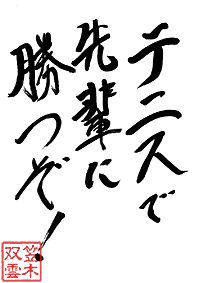 テニスで
先輩に
勝つぞ！
笠木
双雲